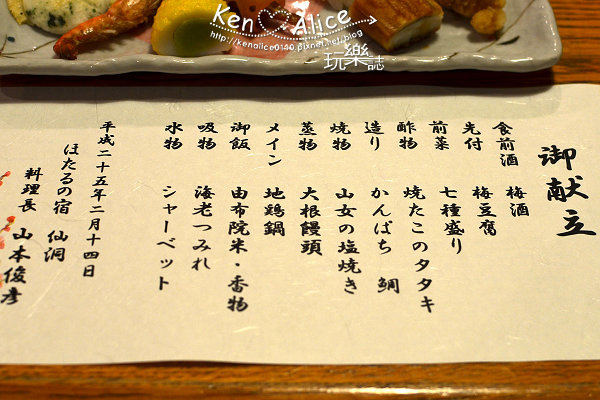 Ken Alice
http://kenalice0140.pixnet.net/blog
玩樂誌
御献立
食前酒 梅酒
先付 梅豆腐
前菜 七種盛り
酢物 焼たこのタタキ
造り かんぱち 鯛
焼物 山女の塩焼き
蒸物 大根饅頭
メイン 地鶏鍋
御飯 由布院米・香物
吸物 海老つみれ
水物 シャーベット
平成二十五年二月十四日
ほたるの宿 仙洞
料理長 山本俊彦